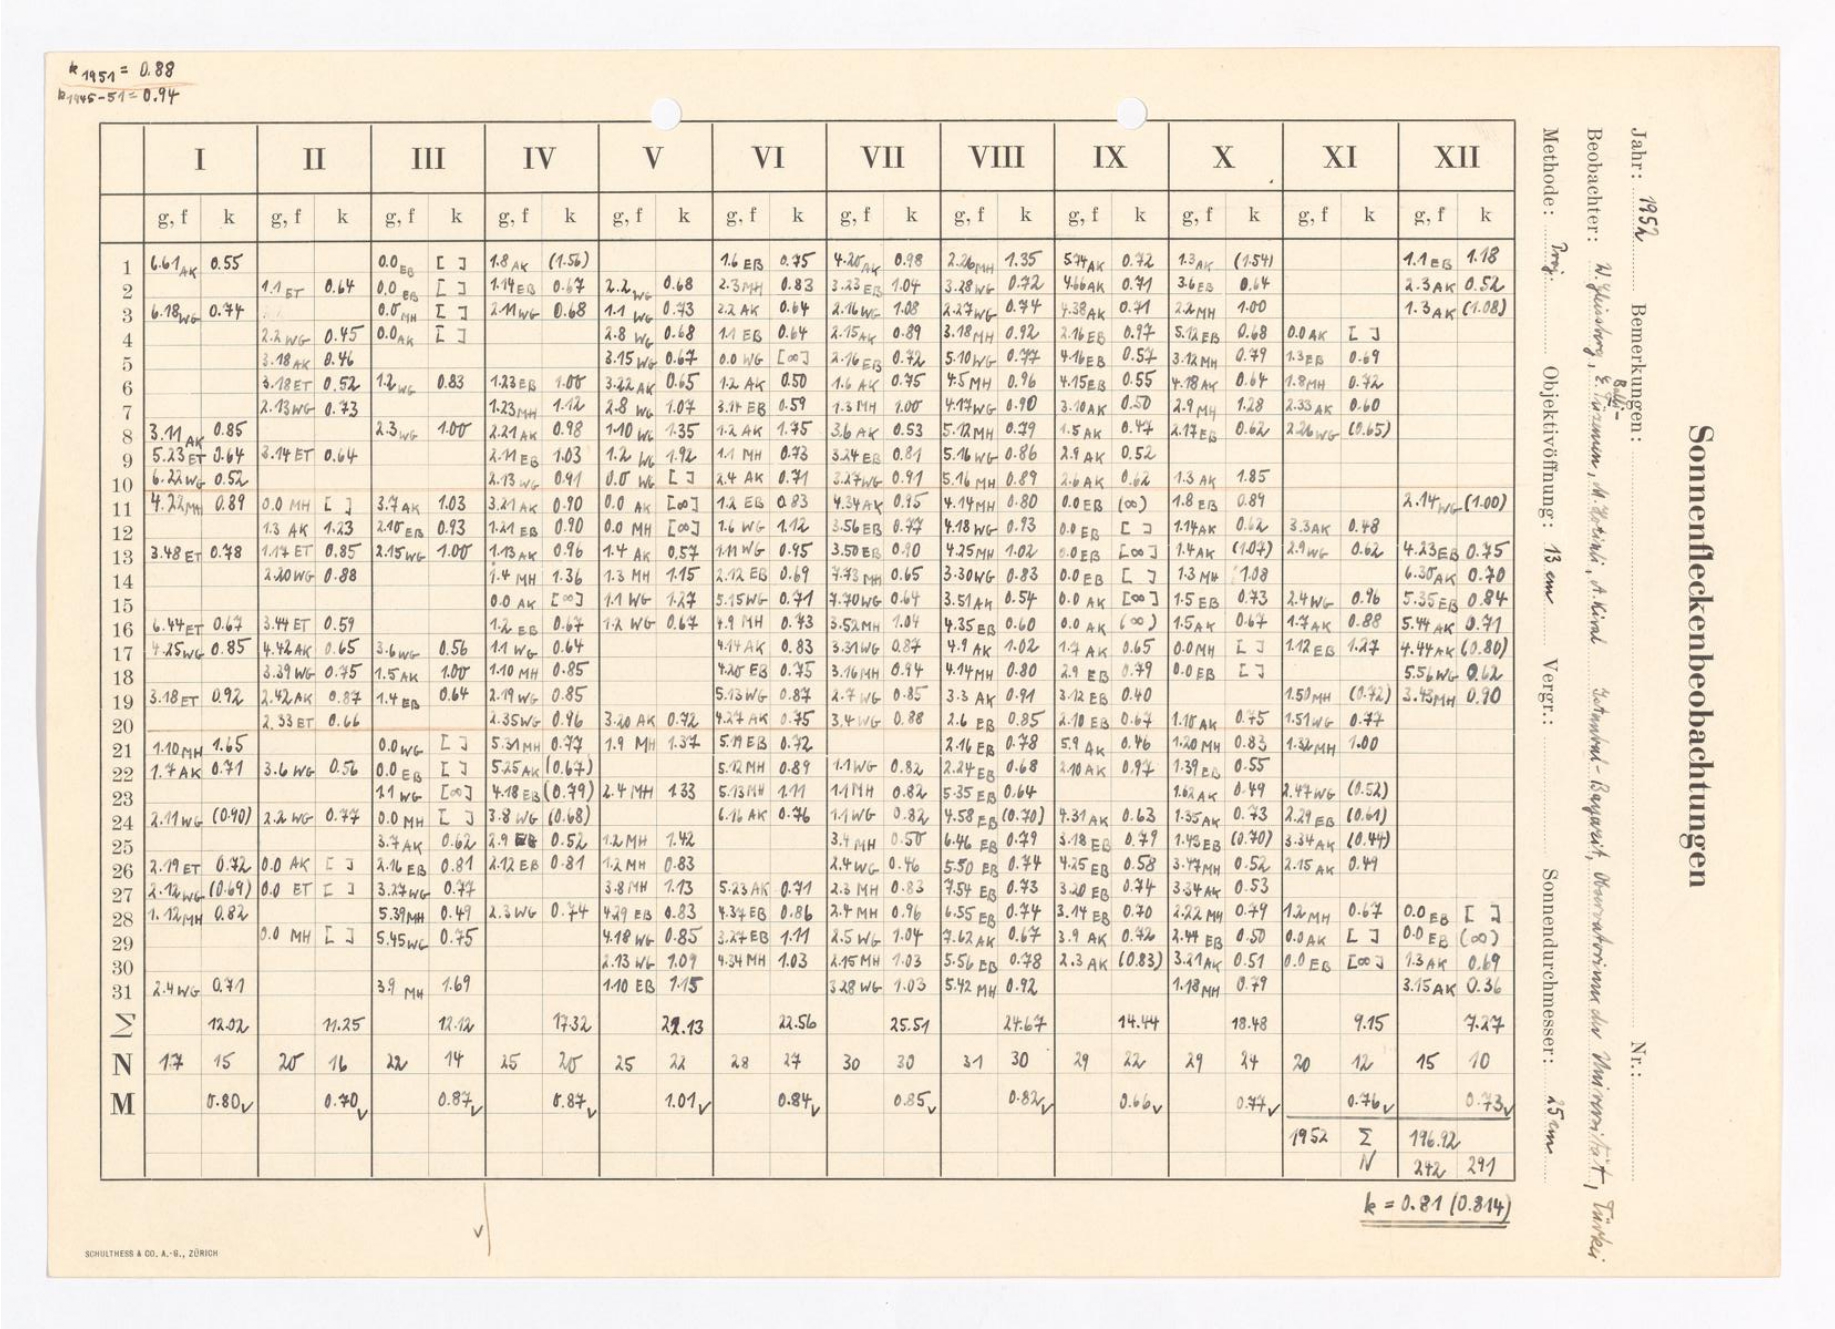 k 1951 = 0.88
k 1945-51 = 0.94
Sonnenfleckenbeobachtungen
Jahr: 1952 Bemerkungen: Nr.:
Beobachter: W. Gleissberg, A. Kiral Istanbul-Bayazit, Observatorium der Universität, Türkei
Methode: Proj. Objektivöffnung: 13 cm Vergr.: Sonnendurchmesser: 25 cm
I II III IV V VI VII VIII IX X XI XII
g, f k g, f k g, f k g, f k g, f k g, f k g, f k g, f k g, f k g, f k g, f k g, f k
1 6.61 AK 0.55 0.0 EB [ ] 1.8 AK (1.56) 1.6 EB 0.75 4.20 AK 0.98 2.26 MH 1.35 5.74 AK 0.72 1.3 AK (1.54) 1.1 EB 1.18
2 1.1 ET 0.64 0.0 EB [ ] 1.14 EB 0.67 2.2 WG 0.68 2.3 MH 0.83 3.23 EB 1.04 3.28 WG 0.72 4.66 AK 0.71 3.6 EB 0.64 2.3 AK 0.52
3 6.18 WG 0.74 0.0 MH [ ] 2.11 WG 0.68 1.1 WG 0.73 2.2 AK 0.64 2.16 WG 1.08 2.27 WG 0.74 4.38 AK 0.71 2.2 MH 1.00 1.3 AK (1.08)
4 2.2 WG 0.45 0.0 AK [ ] 2.8 WG 0.68 1.1 EB 0.64 2.15 AK 0.89 3.18 MH 0.92 2.16 EB 0.97 5.12 EB 0.68 0.0 AK [ ]
5 3.18 AK 0.46 3.15 WG 0.67 0.0 WG [∞] 2.16 EB 0.72 5.10 WG 0.77 4.16 EB 0.57 3.12 MH 0.79 1.3 EB 0.69
6 3.18 ET 0.52 1.2 WG 0.83 1.23 EB 1.00 3.22 AK 0.65 1.2 AK 0.50 1.6 AK 0.75 4.5 MH 0.96 4.15 EB 0.55 4.18 AK 0.64 1.8 MH 0.72
7 2.13 WG 0.73 1.23 MH 1.12 2.8 WG 1.07 3.11 EB 0.59 1.3 MH 1.00 4.17 WG 0.90 3.10 AK 0.50 2.9 MH 1.28 2.33 AK 0.60
8 3.11 AK 0.85 2.3 WG 1.00 2.21 AK 0.98 1.10 WG 1.35 1.2 AK 1.75 3.6 AK 0.53 5.12 MH 0.79 1.5 AK 0.47 2.17 EB 0.62 2.26 WG (0.65)
9 5.23 ET 0.64 3.14 ET 0.64 2.11 EB 1.03 1.2 WG 1.92 1.1 MH 0.73 3.24 EB 0.81 5.16 WG 0.86 2.9 AK 0.52
10 6.22 WG 0.52 2.13 WG 0.91 0.0 WG [ ] 2.4 AK 0.71 3.27 WG 0.91 5.16 MH 0.89 2.6 AK 0.62 1.3 AK 1.85
11 4.22 MH 0.89 0.0 MH [ ] 3.7 AK 1.03 3.21 AK 0.90 0.0 AK [∞] 1.2 EB 0.83 4.34 AK 0.95 4.14 MH 0.80 0.0 EB (∞) 1.8 EB 0.89 2.14 WG (1.00)
12 1.3 AK 1.23 2.10 EB 0.93 1.21 EB 0.90 0.0 MH [∞] 1.6 WG 1.12 3.56 EB 0.77 4.18 WG 0.93 0.0 EB [ ] 1.14 AK 0.62 3.3 AK 0.48
13 3.48 ET 0.78 1.17 ET 0.85 2.15 WG 1.00 1.13 AK 0.96 1.4 AK 0.57 1.11 WG 0.95 3.50 EB 0.90 4.25 MH 1.02 0.0 EB [∞] 1.4 AK (1.07) 2.9 WG 0.62 4.23 EB 0.75
14 2.20 WG 0.88 1.4 MH 1.36 1.3 MH 1.15 2.12 EB 0.69 7.73 MH 0.65 3.30 WG 0.83 0.0 EB [ ] 1.3 MH 1.08 6.30 AK 0.70
15 0.0 AK [∞] 1.1 WG 1.27 5.15 WG 0.71 7.70 WG 0.64 3.51 AK 0.54 0.0 AK [∞] 1.5 EB 0.73 2.4 WG 0.96 5.35 EB 0.84
16 6.44 ET 0.67 3.44 ET 0.59 1.2 EB 0.67 1.2 WG 0.67 4.9 MH 0.73 3.52 MH 1.04 4.35 EB 0.60 0.0 AK (∞) 1.5 AK 0.67 1.7 AK 0.88 5.44 AK 0.71
17 4.25 WG 0.85 4.42 AK 0.65 3.6 WG 0.56 1.1 WG 0.64 4.14 AK 0.83 3.31 WG 0.87 4.9 AK 1.02 1.7 AK 0.65 0.0 MH [ ] 1.12 EB 1.27 4.44 AK (0.80)
18 3.39 WG 0.75 1.5 AK 1.00 1.10 MH 0.85 4.20 EB 0.75 3.16 MH 0.94 4.14 MH 0.80 2.9 EB 0.79 0.0 EB [ ] 5.56 WG 0.62
19 3.18 ET 0.92 2.42 AK 0.87 1.4 EB 0.64 2.19 WG 0.85 5.13 WG 0.87 2.7 WG 0.85 3.3 AK 0.91 3.12 EB 0.40 1.50 MH (0.72) 3.43 MH 0.90
20 2.33 ET 0.66 2.35 WG 0.96 3.20 AK 0.72 4.27 AK 0.75 3.4 WG 0.88 2.6 EB 0.85 2.10 EB 0.67 1.10 AK 0.75 1.51 WG 0.77
21 1.10 MH 1.65 0.0 WG [ ] 5.31 MH 0.77 1.9 MH 1.37 5.19 EB 0.72 2.16 EB 0.78 5.9 AK 0.46 1.20 MH 0.83 1.32 MH 1.00
22 1.7 AK 0.71 3.6 WG 0.56 0.0 EB [ ] 5.25 AK (0.67) 5.12 MH 0.89 1.1 WG 0.82 2.24 EB 0.68 2.10 AK 0.97 1.39 EB 0.55
23 1.1 WG [∞] 4.18 EB (0.79) 2.4 MH 1.33 5.13 MH 1.11 1.1 MH 0.82 5.35 EB 0.64 1.62 AK 0.49 2.47 WG (0.52)
24 2.11 WG (0.90) 2.2 WG 0.77 0.0 MH [ ] 3.8 WG (0.68) 6.16 AK 0.76 1.1 WG 0.82 4.58 EB (0.70) 4.31 AK 0.63 1.35 AK 0.73 2.29 EB (0.61)
25 3.7 AK 0.62 2.9 EB 0.52 1.2 MH 1.42 3.4 MH 0.50 6.46 EB 0.79 3.18 EB 0.79 1.43 EB (0.70) 3.34 AK (0.44)
26 2.19 ET 0.72 0.0 AK [ ] 2.16 EB 0.81 2.12 EB 0.81 1.2 MH 0.83 2.4 WG 0.46 5.50 EB 0.74 4.25 EB 0.58 3.47 MH 0.52 2.15 AK 0.49
27 2.12 WG (0.69) 0.0 ET [ ] 3.27 WG 0.77 3.8 MH 1.13 5.23 AK 0.71 2.3 MH 0.83 7.54 EB 0.73 3.20 EB 0.74 3.34 AK 0.53
28 1.12 MH 0.82 5.39 MH 0.49 2.3 WG 0.74 4.29 EB 0.83 4.37 EB 0.86 2.4 MH 0.96 6.55 EB 0.74 3.14 EB 0.70 2.22 MH 0.79 1.2 MH 0.67 0.0 EB [ ]
29 0.0 MH [ ] 5.45 WG 0.75 4.18 WG 0.85 3.27 EB 1.11 2.5 WG 1.04 7.62 AK 0.67 3.9 AK 0.72 2.44 EB 0.50 0.0 AK [ ] 0.0 EB (∞)
30 2.13 WG 1.09 4.34 MH 1.03 2.15 MH 1.03 5.56 EB 0.78 2.3 AK (0.83) 3.21 AK 0.51 0.0 EB [∞] 1.3 AK 0.69
31 2.4 WG 0.71 3.9 MH 1.69 1.10 EB 1.15 3.28 WG 1.03 5.42 MH 0.92 1.18 MH 0.79 3.15 AK 0.36
Σ 12.02 11.25 12.12 17.32 22.13 22.56 25.51 24.67 14.44 18.48 9.15 7.27
N 17 15 20 16 22 14 25 20 25 22 28 27 30 30 31 30 29 22 29 24 20 12 15 10
M 0.80 0.70 0.87 0.87 1.01 0.84 0.85 0.82 0.66 0.77 0.76 0.73
1952 Σ 196.92
N 242 291
k = 0.81 (0.814)
SCHULTHESS & CO. A.-G., ZÜRICH